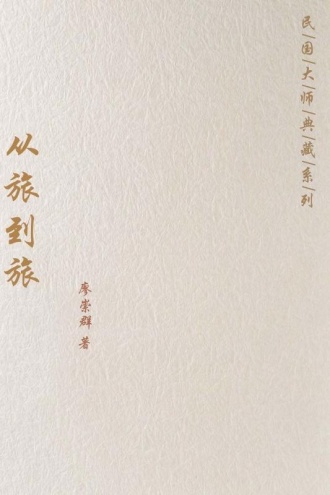 民国大师典藏系列
从旅到旅
廖崇群 著